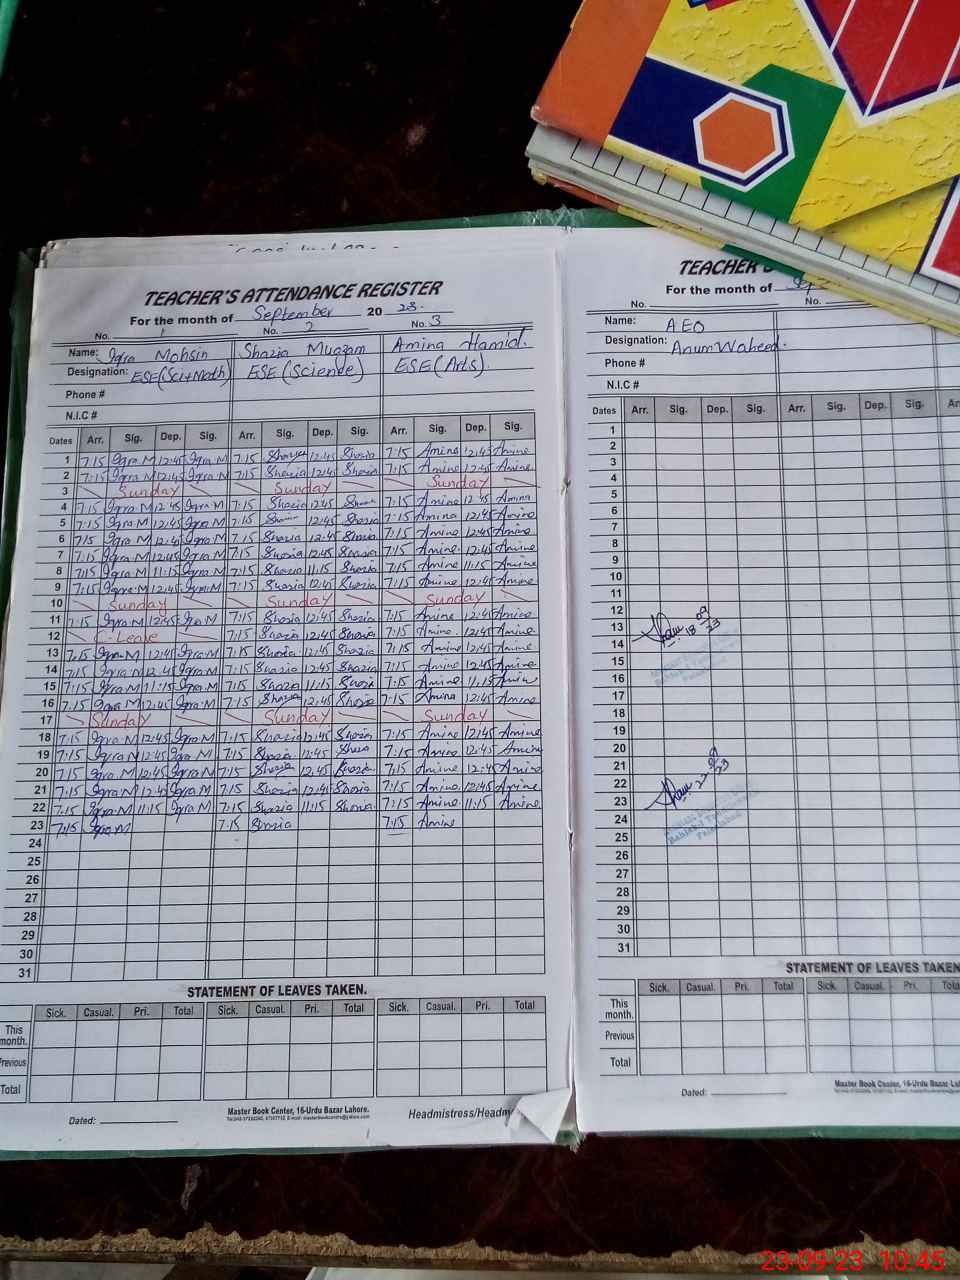 TEACHER'S ATTENDANCE REGISTER
For the month of September 20 23.
No. 1 No. 2 No. 3
Name: Iqra Mohsin Shazia Muazam Amina Hamid.
Designation: ESE(Sci+Math) ESE(Science) ESE(Arts).
Phone #
N.I.C #
Dates Arr. Sig. Dep. Sig. Arr. Sig. Dep. Sig. Arr. Sig. Dep. Sig.
1 7:15 Iqra M 12:45 Iqra M 7:15 Shazia 12:45 Shazia 7:15 Amina 12:45 Amina
2 7:15 Iqra M 12:45 Iqra M 7:15 Shazia 12:45 Shazia 7:15 Amina 12:45 Amina
3 Sunday Sunday Sunday
4 7:15 Iqra M 12:45 Iqra M 7:15 Shazia 12:45 Shazia 7:15 Amina 12:45 Amina
5 7:15 Iqra M 12:45 Iqra M 7:15 Shazia 12:45 Shazia 7:15 Amina 12:45 Amina
6 7:15 Iqra M 12:45 Iqra M 7:15 Shazia 12:45 Shazia 7:15 Amina 12:45 Amina
7 7:15 Iqra M 12:45 Iqra M 7:15 Shazia 12:45 Shazia 7:15 Amina 12:45 Amina
8 7:15 Iqra M 11:15 Iqra M 7:15 Shazia 11:15 Shazia 7:15 Amina 11:15 Amina
9 7:15 Iqra M 12:45 Iqra M 7:15 Shazia 12:45 Shazia 7:15 Amina 12:45 Amina
10 Sunday Sunday Sunday
11 7:15 Iqra M 12:45 Iqra M 7:15 Shazia 12:45 Shazia 7:15 Amina 12:45 Amina
12 C-Leave 7:15 Shazia 12:45 Shazia 7:15 Amina 12:45 Amina
13 7:15 Iqra M 12:45 Iqra M 7:15 Shazia 12:45 Shazia 7:15 Amina 12:45 Amina
14 7:15 Iqra M 12:45 Iqra M 7:15 Shazia 12:45 Shazia 7:15 Amina 12:45 Amina
15 7:15 Iqra M 11:15 Iqra M 7:15 Shazia 11:15 Shazia 7:15 Amina 11:15 Amina
16 7:15 Iqra M 12:45 Iqra M 7:15 Shazia 12:45 Shazia 7:15 Amina 12:45 Amina
17 Sunday Sunday Sunday
18 7:15 Iqra M 12:45 Iqra M 7:15 Shazia 12:45 Shazia 7:15 Amina 12:45 Amina
19 7:15 Iqra M 12:45 Iqra M 7:15 Shazia 12:45 Shazia 7:15 Amina 12:45 Amina
20 7:15 Iqra M 12:45 Iqra M 7:15 Shazia 12:45 Shazia 7:15 Amina 12:45 Amina
21 7:15 Iqra M 12:45 Iqra M 7:15 Shazia 12:45 Shazia 7:15 Amina 12:45 Amina
22 7:15 Iqra M 11:15 Iqra M 7:15 Shazia 11:15 Shazia 7:15 Amina 11:15 Amina
23 7:15 Iqra M 7:15 Shazia 7:15 Amina
24
25
26
27
28
29
30
31
STATEMENT OF LEAVES TAKEN.
Sick. Casual. Pri. Total Sick. Casual. Pri. Total Sick. Casual. Pri. Total
This month.
Previous
Total
Dated:
Master Book Center, 16-Urdu Bazar Lahore.
Headmistress/Headm
TEACHER'S
For the month of
No. No.
Name: AEO
Designation: Anum Waheed.
Phone #
N.I.C #
Dates Arr. Sig. Dep. Sig. Arr. Sig. Dep. Sig.
1
2
3
4
5
6
7
8
9
10
11
12
13
14
15
16
17
18
19
20
21
22
23
24
25
26
27
28
29
30
31
STATEMENT OF LEAVES TAKEN
Sick. Casual. Pri. Total Sick. Casual. Pri.
This month.
Previous
Total
Dated:
Master Book Center, 16-Urdu Bazar
23-09-23 10:45